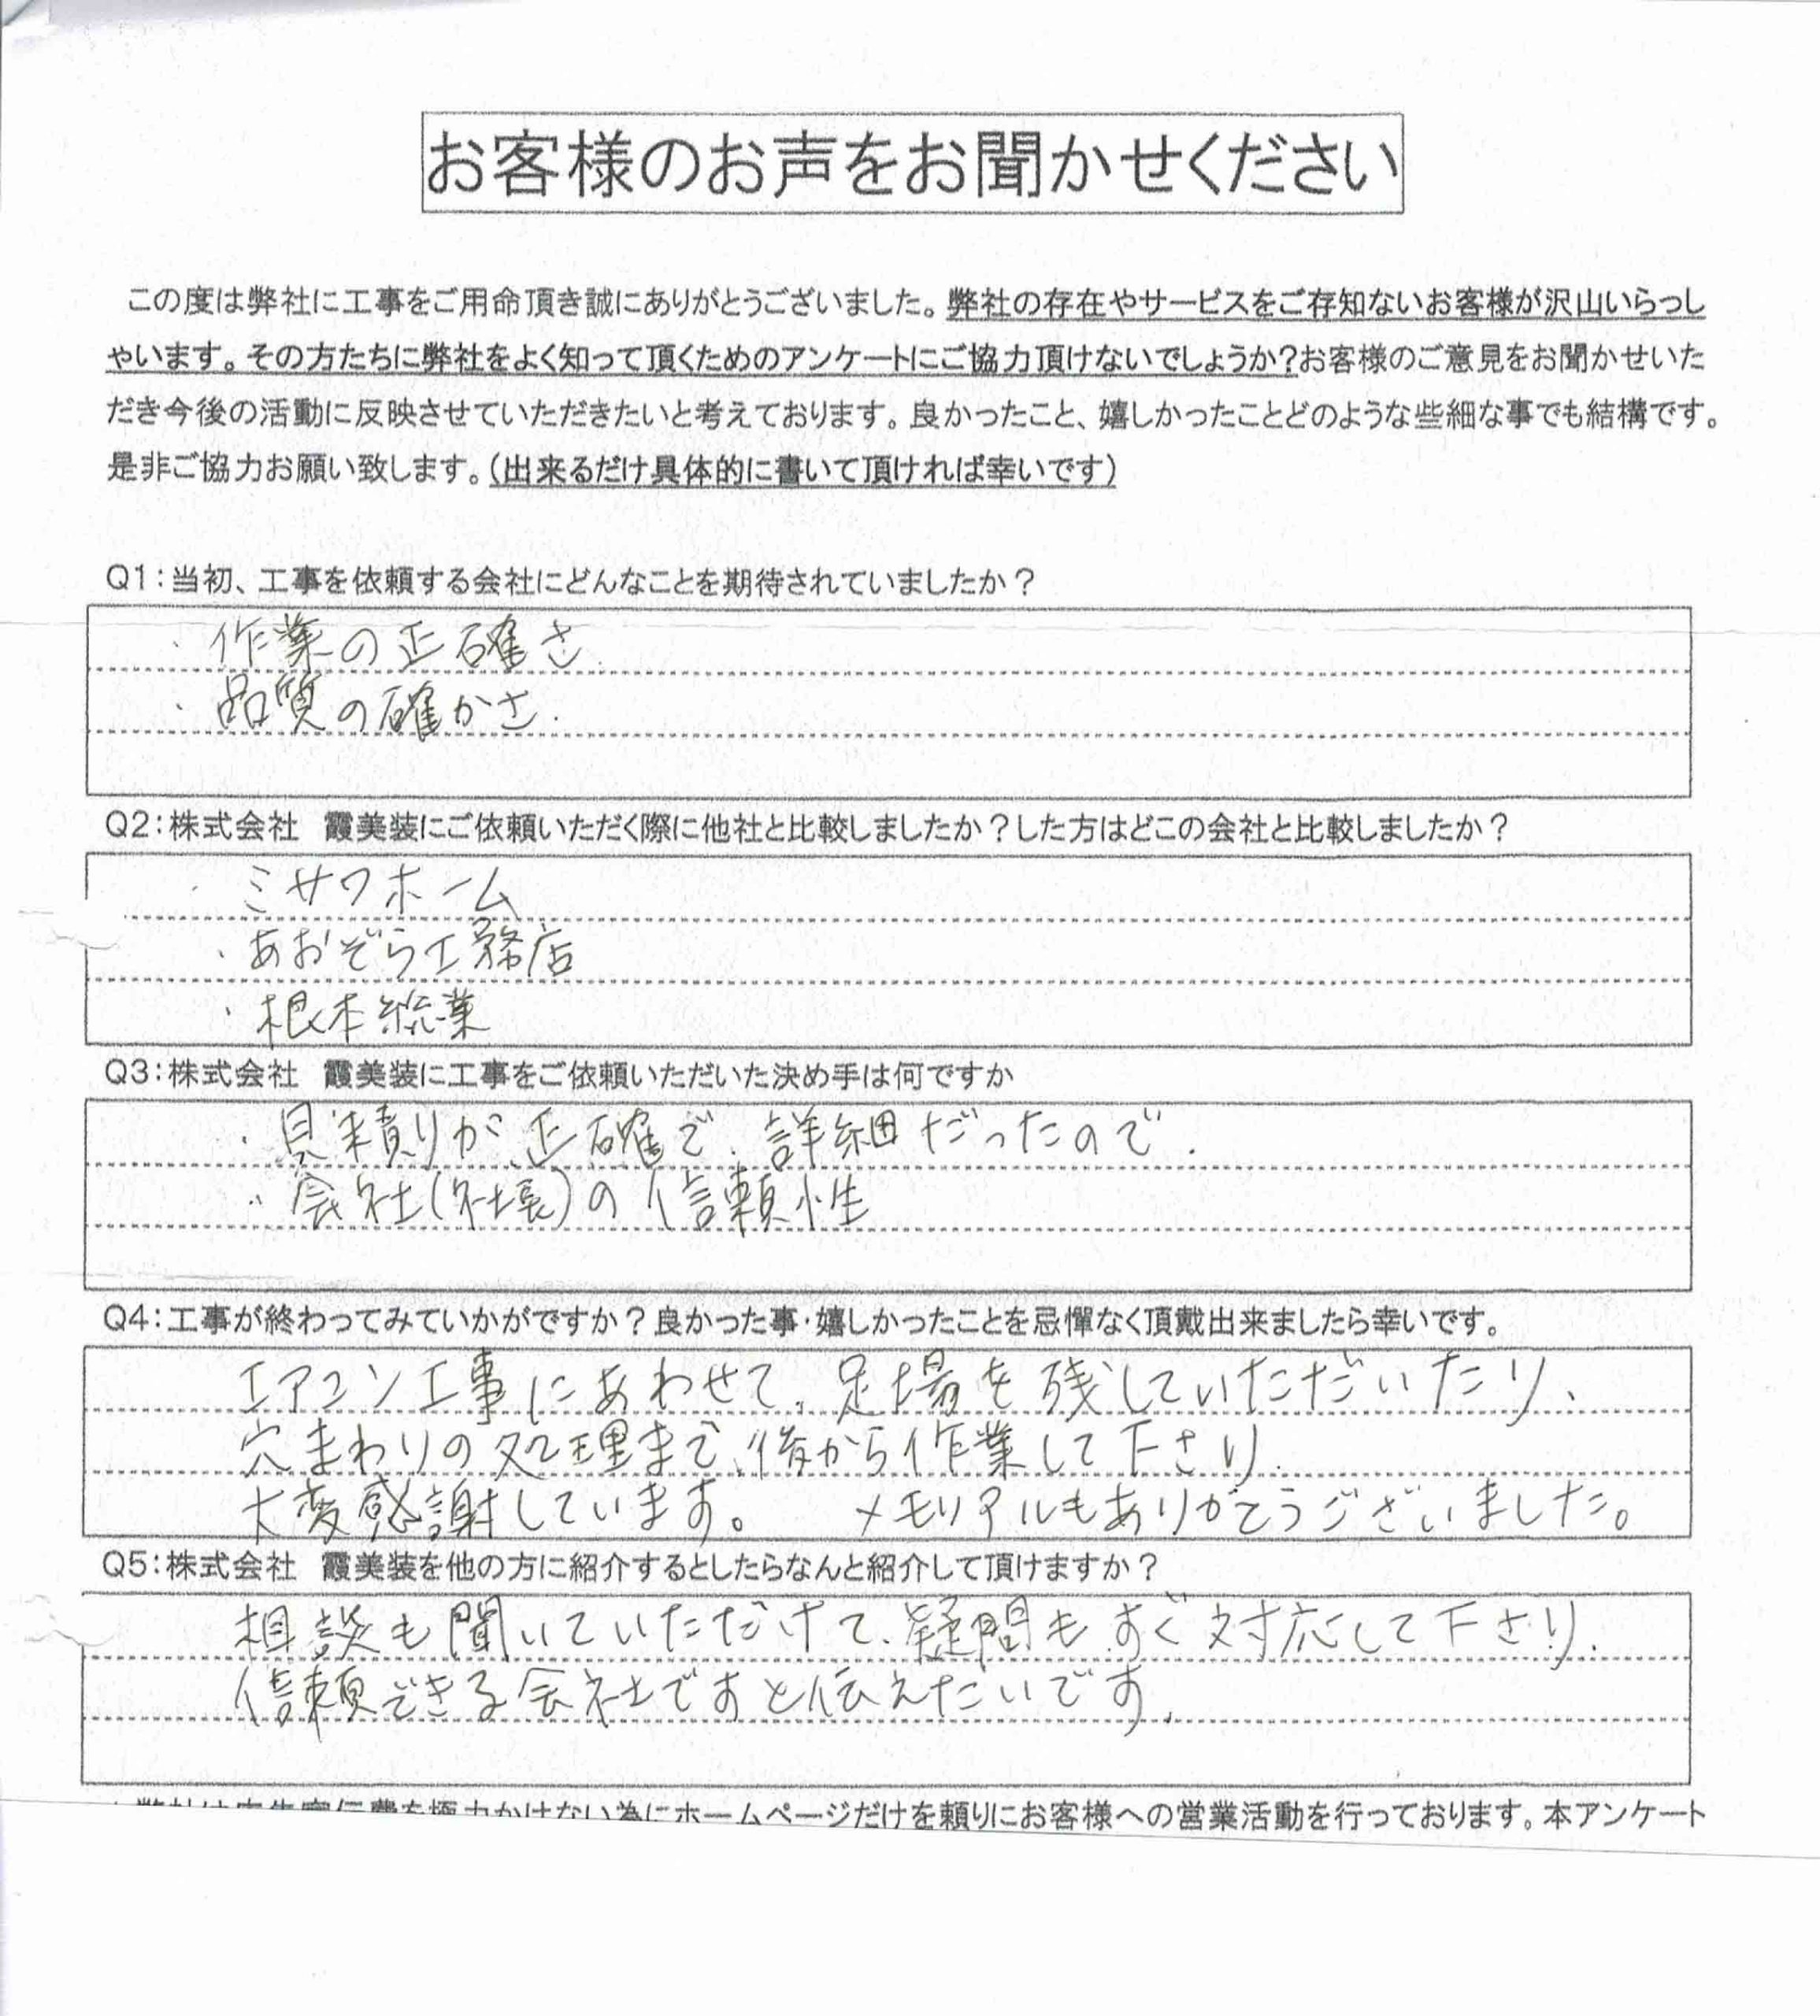 お客様のお声をお聞かせください
この度は弊社に工事をご用命頂き誠にありがとうございました。弊社の存在やサービスをご存知ないお客様が沢山いらっし
ゃいます。その方たちに弊社をよく知って頂くためのアンケートにご協力頂けないでしょうか?お客様のご意見をお聞かせいた
だき今後の活動に反映させていただきたいと考えております。良かったこと、嬉しかったことどのような些細な事でも結構です。
是非ご協力お願い致します。(出来るだけ具体的に書いて頂ければ幸いです)
Q1:当初、工事を依頼する会社にどんなことを期待されていましたか?
・作業の正確さ
・品質の確かさ.
Q2:株式会社 霞美装にご依頼いただく際に他社と比較しましたか?した方はどこの会社と比較しましたか?
・ミサワホーム
・あおぞら工務店
・根本総業
Q3:株式会社 霞美装に工事をご依頼いただいた決め手は何ですか
・見積りが正確で、詳細だったので.
・会社(社長)の信頼性
Q4:工事が終わってみていかがですか?良かった事・嬉しかったことを忌憚なく頂戴出来ましたら幸いです。
エアコン工事にあわせて、足場を残していただいたり、
穴まわりの処理まで、後から作業して下さり、
大変感謝しています。 メモリアルもありがとうございました。
Q5:株式会社 霞美装を他の方に紹介するとしたらなんと紹介して頂けますか?
相談も聞いていただけて、疑問もすぐ対応して下さり、
信頼できる会社ですと伝えたいです.
弊社は 宣伝費を極力かけない為にホームページだけを頼りにお客様への営業活動を行っております。本アンケート